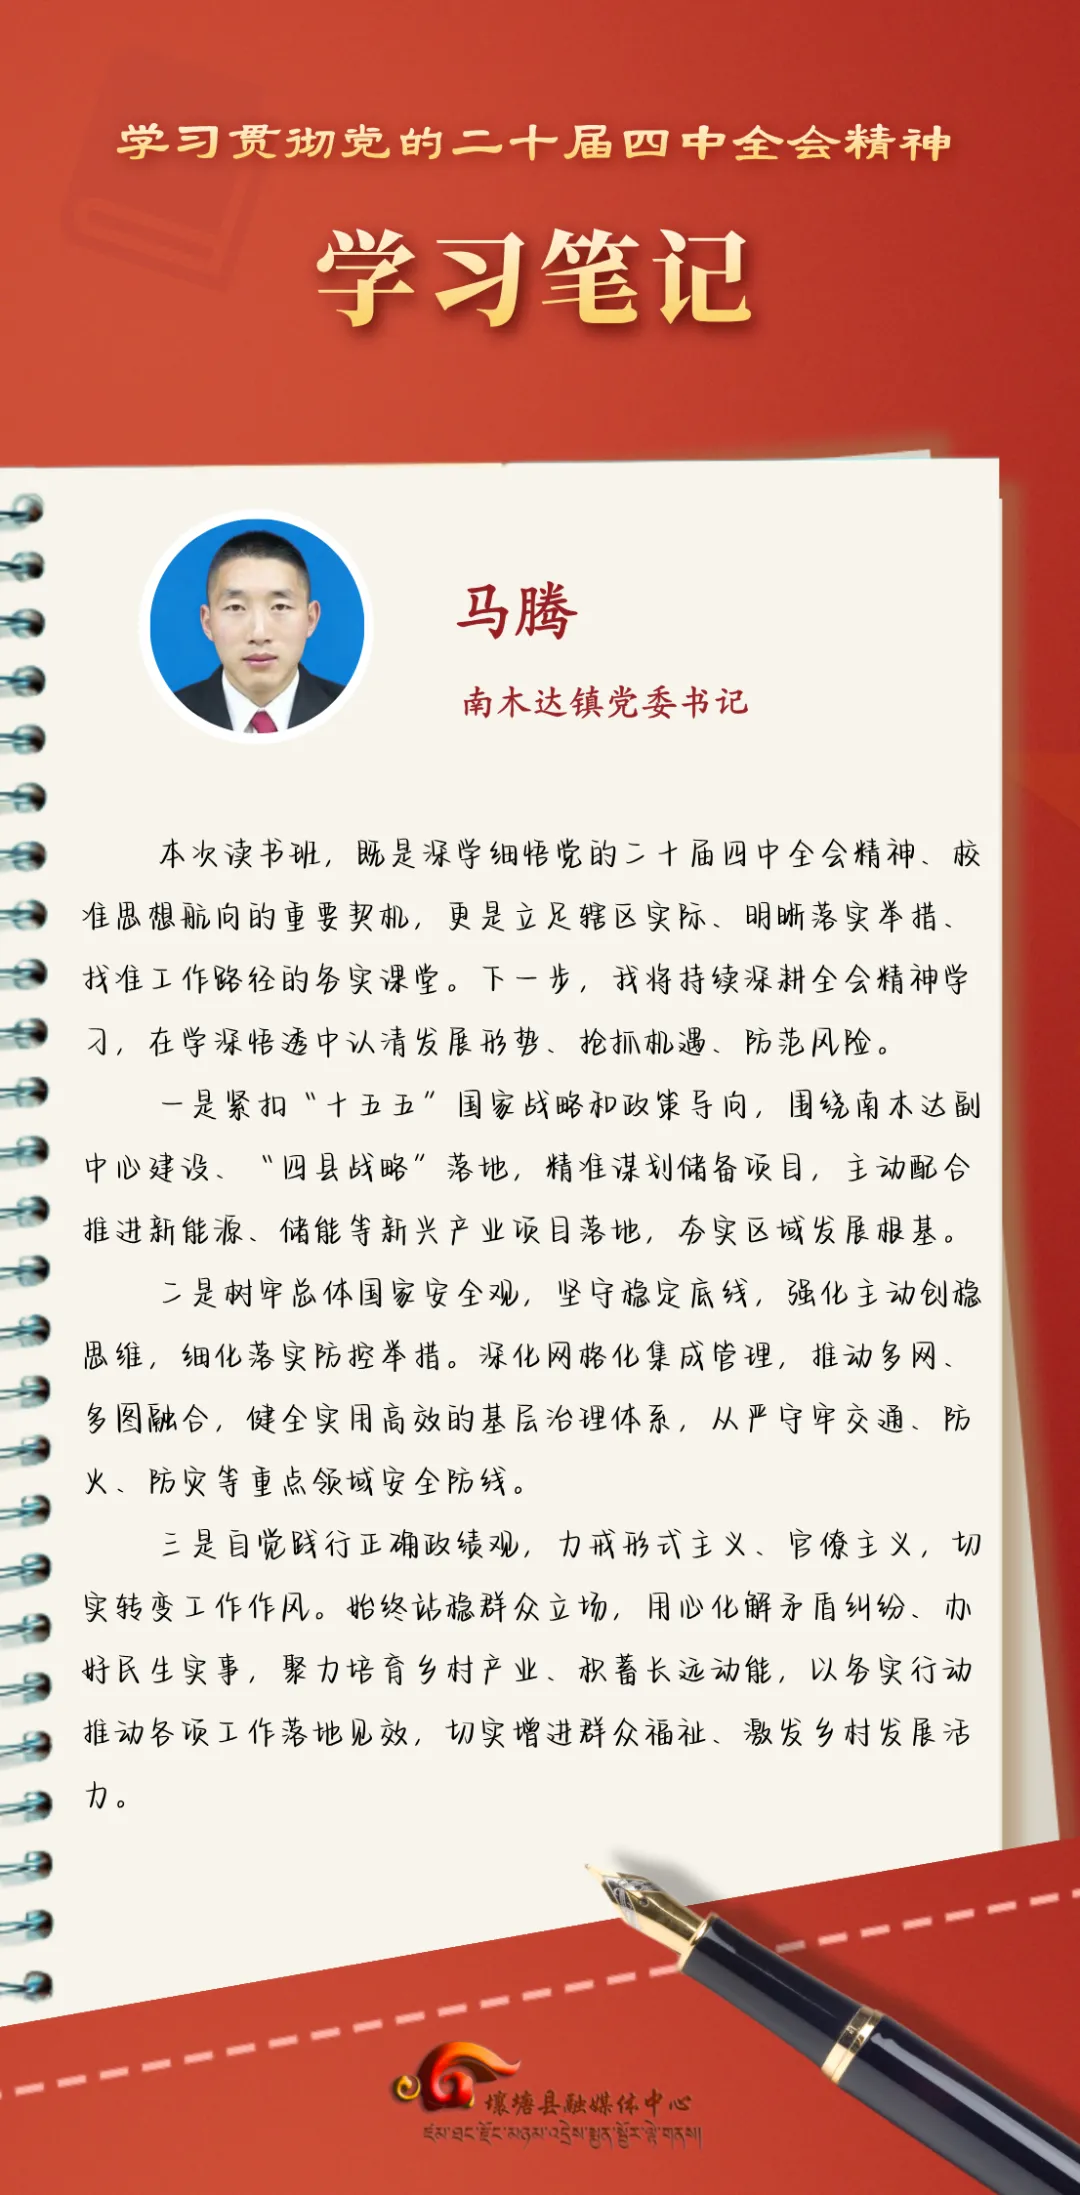 学习贯彻党的二十届四中全会精神
学习笔记
马腾
南木达镇党委书记
本次读书班，既是深学细悟党的二十届四中全会精神、校
准思想航向的重要契机，更是立足辖区实际、明晰落实举措、
找准工作路径的务实课堂。下一步，我将持续深耕全会精神学
习，在学深悟透中认清发展形势、抢抓机遇、防范风险。
一是紧扣“十五五”国家战略和政策导向，围绕南木达副
中心建设、“四县战略”落地，精准谋划储备项目，主动配合
推进新能源、储能等新兴产业项目落地，夯实区域发展根基。
二是树牢总体国家安全观，坚守稳定底线，强化主动创稳
思维，细化落实防控举措。深化网格化集成管理，推动多网、
多图融合，健全实用高效的基层治理体系，从严守牢交通、防
火、防灾等重点领域安全防线。
三是自觉践行正确政绩观，力戒形式主义、官僚主义，切
实转变工作作风。始终站稳群众立场，用心化解矛盾纠纷、办
好民生实事，聚力培育乡村产业、积蓄长远动能，以务实行动
推动各项工作落地见效，切实增进群众福祉、激发乡村发展活
力。
壤塘县融媒体中心
འཛམ་ཐང་རྫོང་མཉམ་འདྲེས་སྨྱན་སྦྱོར་ལྟེ་གནས།